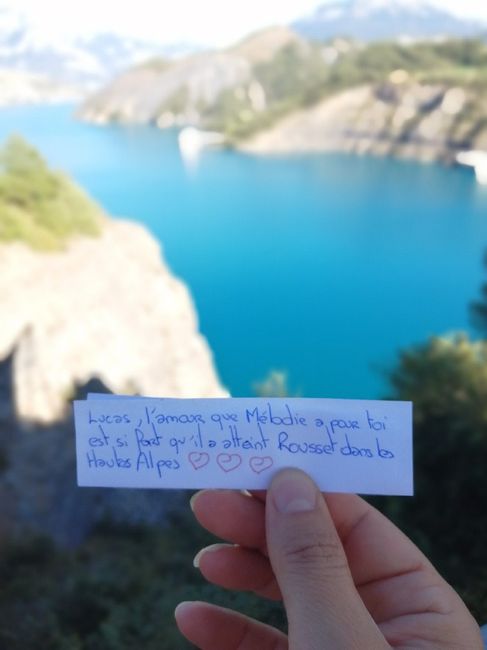 Lucas, l'amour que Mélodie a pour toi
est si fort qu'il a atteint Rousset dans les
Hautes Alpes ♡ ♡ ♡